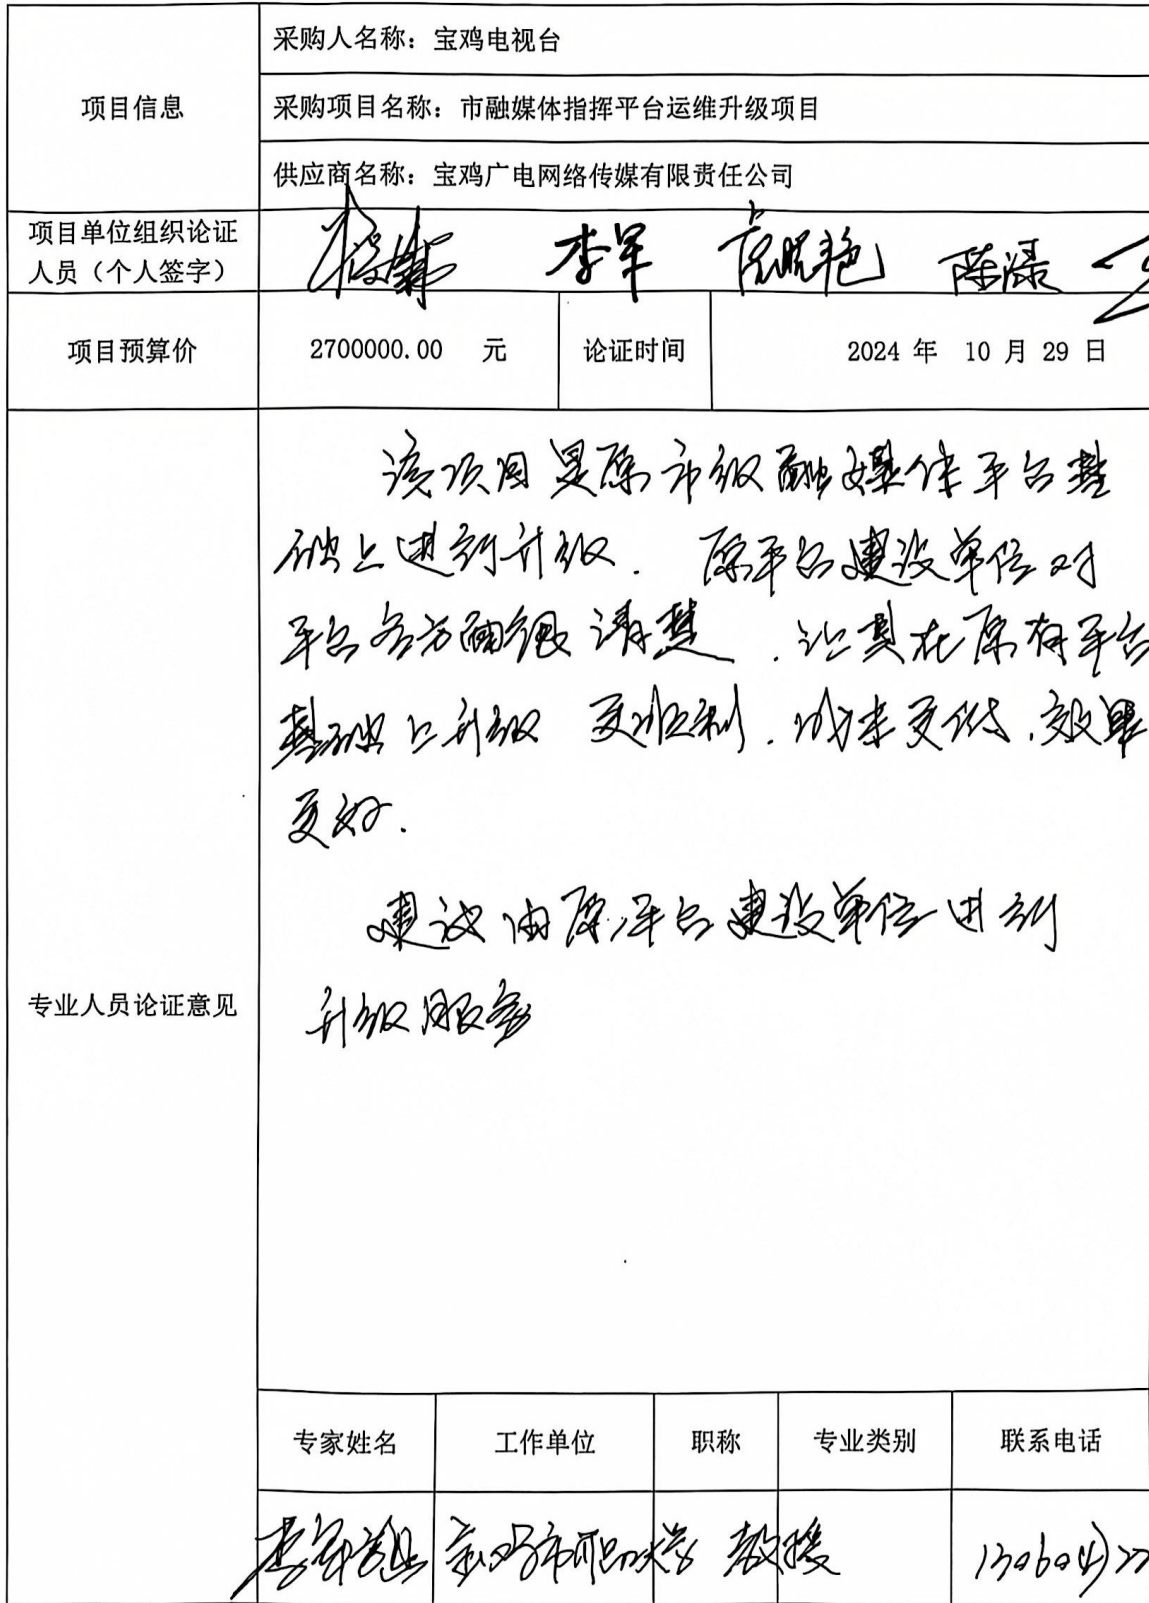 项目信息
采购人名称：宝鸡电视台
采购项目名称：市融媒体指挥平台运维升级项目
供应商名称：宝鸡广电网络传媒有限责任公司
项目单位组织论证
人员（个人签字）
李军 陈渌
项目预算价 2700000.00 元 论证时间 2024 年 10 月 29 日
专业人员论证意见
该项目是原市级融媒体平台基
础上进行升级. 原平台建设单位对
平台各方面很清楚. 让其在原有平台
基础上升级 更顺利. 成本更低. 效果
更好.
建议由原平台建设单位进行
升级服务
专家姓名 工作单位 职称 专业类别 联系电话
教授